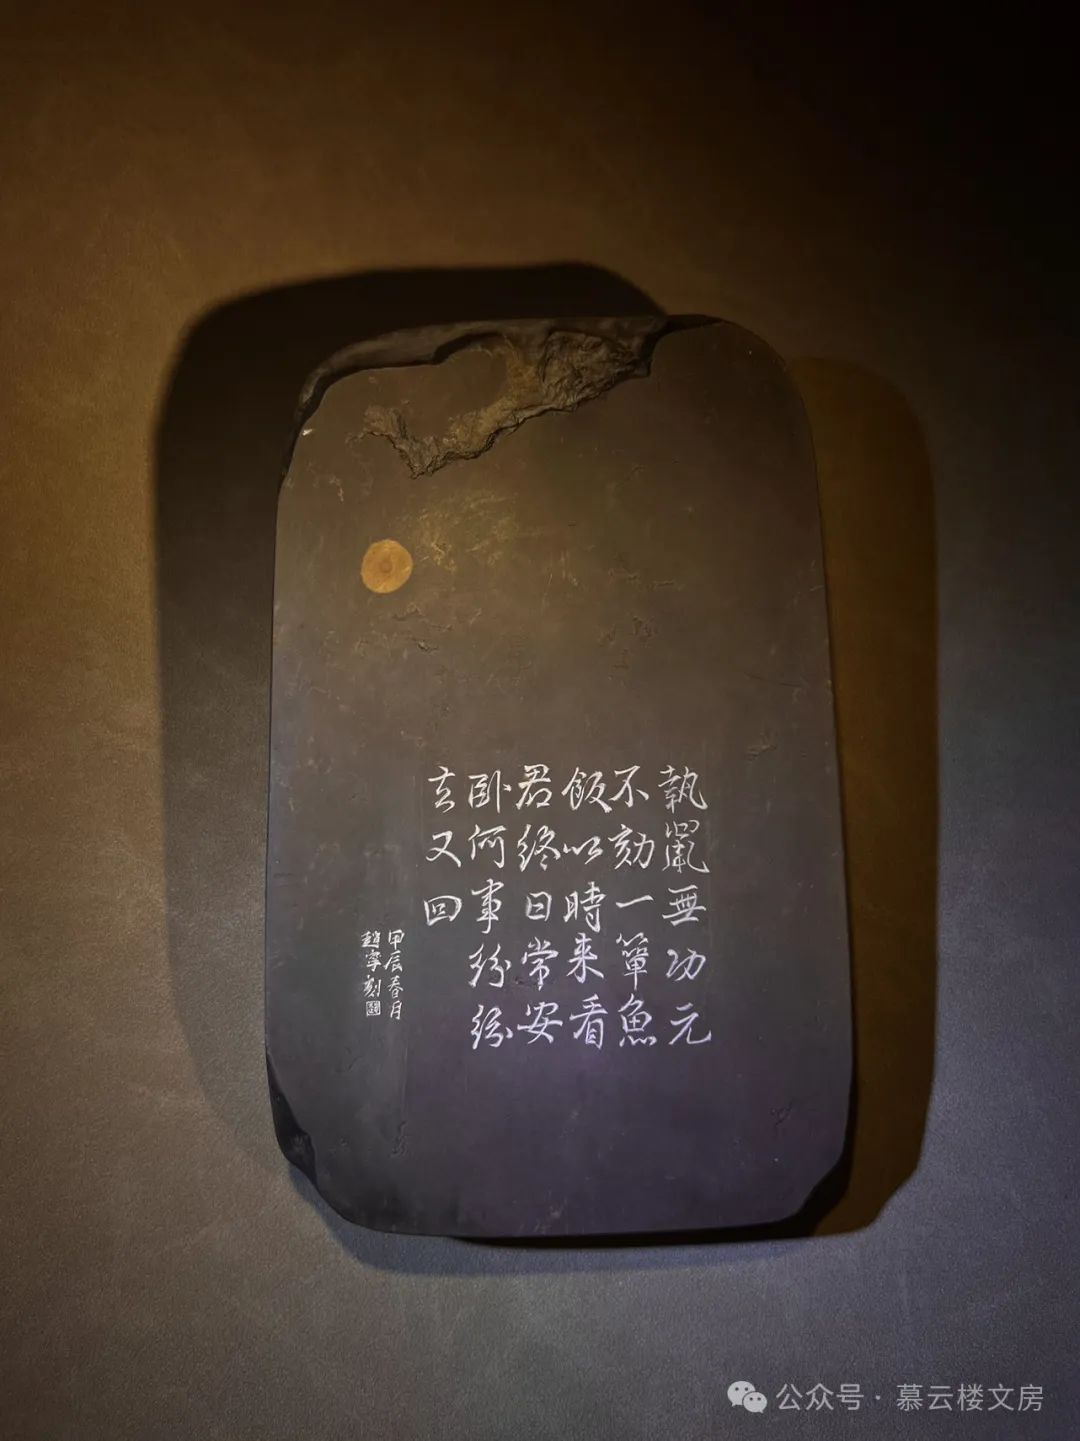 執鼠無功元
不劾一簞魚
飯以時來看
君終日常安
卧何事紛紛
去又回
甲辰春月
趙寧刻
公众号·慕云楼文房